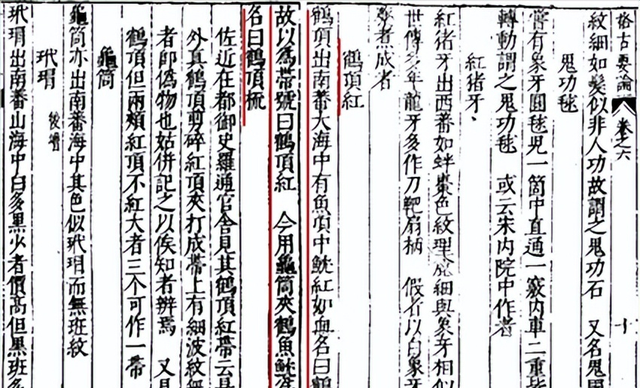 格古要論 卷之六 十
紋細如髮似非人功故謂之鬼功石 又名鬼
鬼功毬
嘗有象牙圓毬兒一箇中直通一竅內車二重
轉動謂之鬼功毬 或云宋內院中作者
紅猪牙
紅猪牙出西番如蚌棗色紋理麄細與象牙相似
世傳多年龍牙多作刀靶扇柄 假者以白象
藥煮成者
鶴頂紅
鶴頂出南番大海中有魚頂中魫紅如血名曰鶴
故以為帶號曰鶴頂紅 今用龜筒夾鶴魚魫
名曰鶴頂梳
佐近在都御史羅通官舍見其鶴頂紅帶云是
外真鶴頂剪碎紅頂夾打成帶上有細波紋無
者即偽物也姑併記之以俟知者辨焉 又見
鶴頂但兩頰紅頂不紅大者三個可作一帶
龜筒
龜筒亦出南番海中其色似玳瑁而無斑紋
玳瑁 後增
玳瑁出南番山海中白多黑少者價高但黑斑多